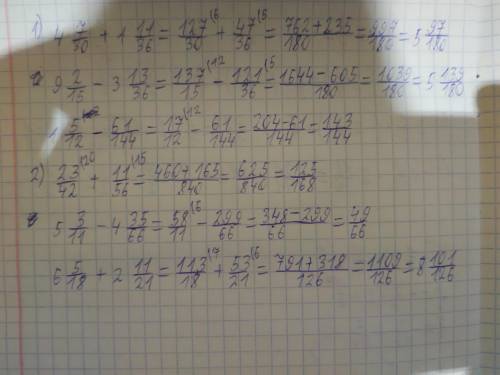 1) 4 7/30 + 1 11/36 = 127/30 \6 + 47/36 \5 = 762+235/180 = 997/180 = 5 97/180
9 2/15 - 3 13/36 = 137/15 \12 - 121/36 \5 = 1644-605/180 = 1039/180 = 5 139/180
1 5/12 - 61/144 = 17/12 \12 - 61/144 = 204-61/144 = 143/144
2) 23/42 \20 + 11/56 \15 = 460+165/840 = 625/840 = 125/168
5 3/11 - 4 35/66 = 58/11 \6 - 299/66 = 348-299/66 = 49/66
6 5/18 + 2 11/21 = 113/18 \7 + 53/21 \6 = 791+318/126 = 1109/126 = 8 101/126